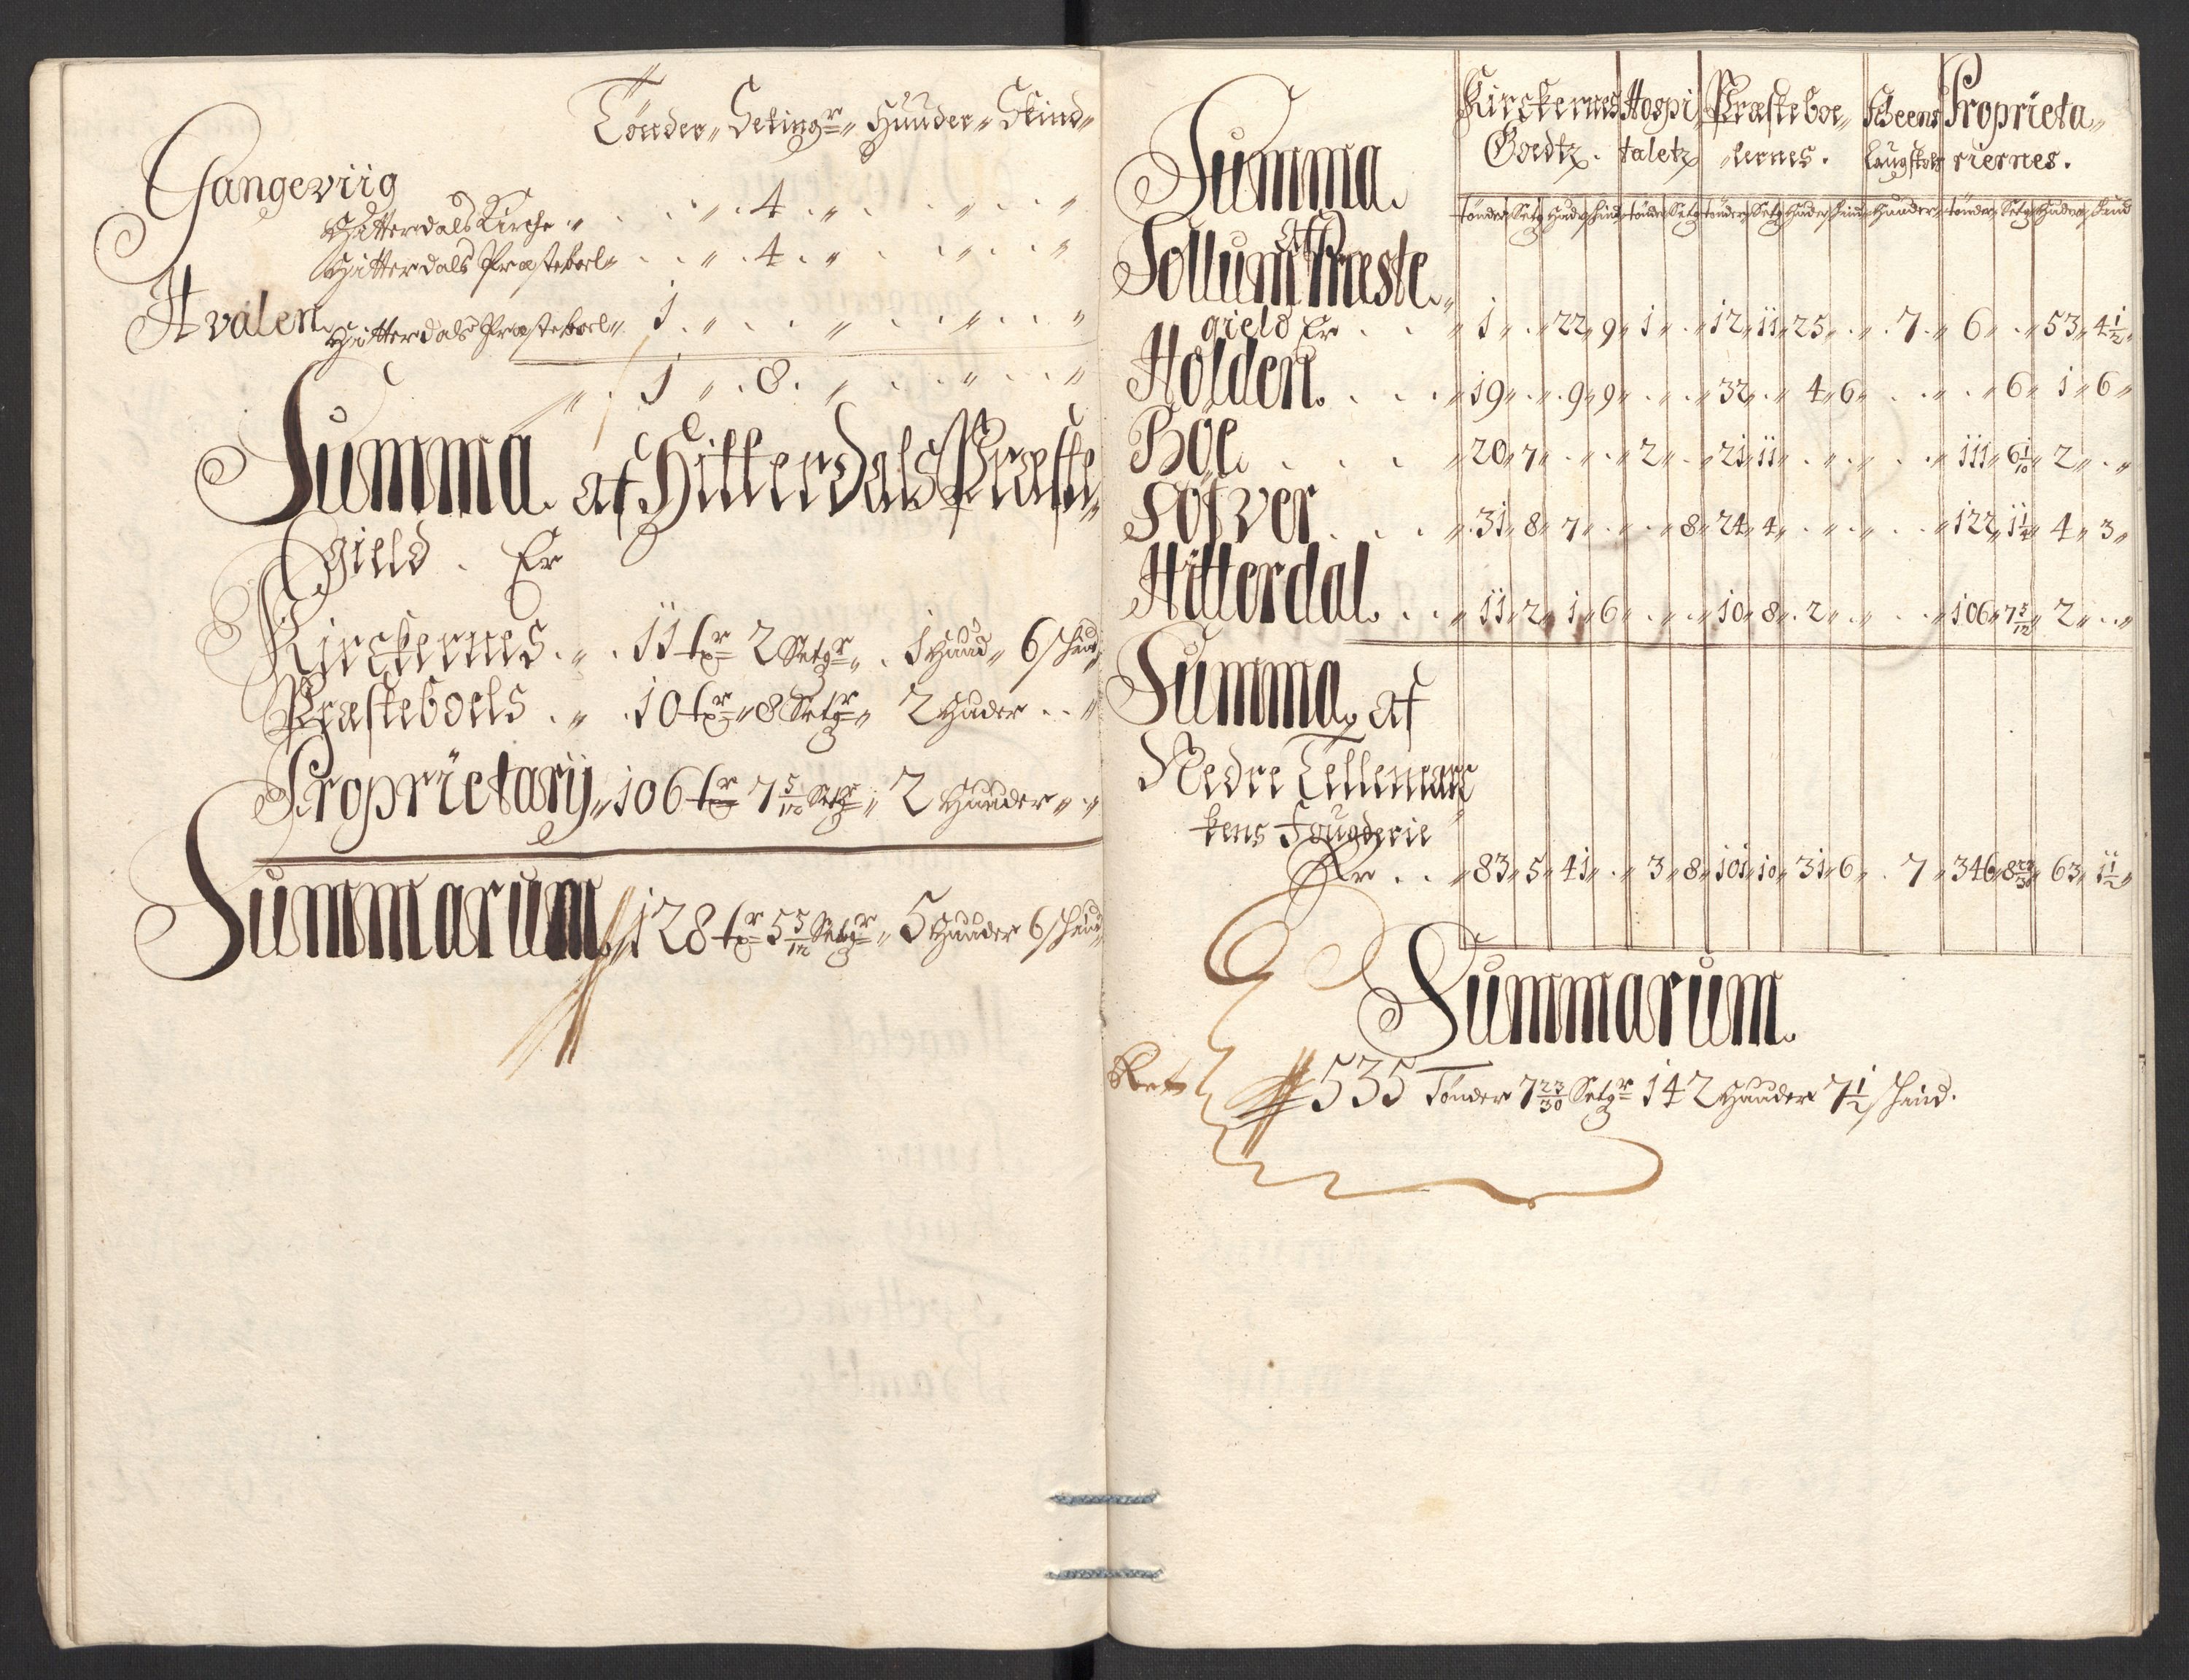 Tönder „ Setingr „ Huuder „ Skind „
Gangeviig
Hitterdals Kirche „ . . „ . 4 . „ . . „ . . „
Hitterdals Præsteboel „ . . „ . 4 . „ . . „ . . „
Hvalen Hitterdals Præsteboel „ 1 . „ . . „ . . „ . . „
„ . 1 „ . 8 . „ . . „ . . „
Summa af Hitterdals Præste„
gield . Er
Kirckernes . „ . 11 tr 2 Setgr „ . 1 Huud „ 6 skind
Præsteboels . „ . 10 tr „ 8 Setgr „ 2 Huder . . „
Proprietarij „ 106 tr 7 5/12 Setgr „ 2 Huuder „ . „
Summarum 128 tr 5 5/12 Setgr „ 5 Huuder 6 skind
Kirckernes Hospi Præsteboe„ Proprieta„
Goedtz . taletz „lernes . Laugstols riernes .
Summa. tönder Setg Huder skind tönder Setg tönder Setg Huder skind Huuder tönder Setg Huder skind
af
Sollum Præste„
gield Er . . „ 1 „ . „ 22 „ 9 „ 1 „ . „ 12 „ 11 „ 25 „ . „ . 7 „ 6 „ . „ 53 „ 4 1/2 „
Holden . . . „ 19 „ . „ 9 „ 9 „ . „ . „ 32 „ . „ 4 „ 6 „ . . „ . „ 6 „ 1 „ 6 „
Böe . . . „ 20 „ 7 „ . „ . „ 2 „ . „ 21 „ 11 „ . „ . „ . . „ 111 „ 6 1/10 „ 2 „ . „
Söfver . . . „ 31 „ 8 „ 7 „ . „ . „ 8 „ 24 „ 4 „ . „ . „ . . „ 122 „ 1 1/4 „ 4 „ 3 „
Hitterdal . . . „ 11 „ 2 „ 1 „ 6 „ . „ . „ 10 „ 8 „ 2 „ . „ . . „ 106 „ 7 5/12 „ 2 „ . „
Summa af
Nedre Tellemar
kens Fougderie
Er . . „ 83 „ 5 „ 41 „ . „ 3 „ 8 „ 101 „ 10 „ 31 „ 6 „ . 7 „ 346 „ 8 23/30 „ 63 „ 1 1/2 „
Summarum
535 Tönder 7 23/30 Setgr 142 Huuder 7 1/2 skind .